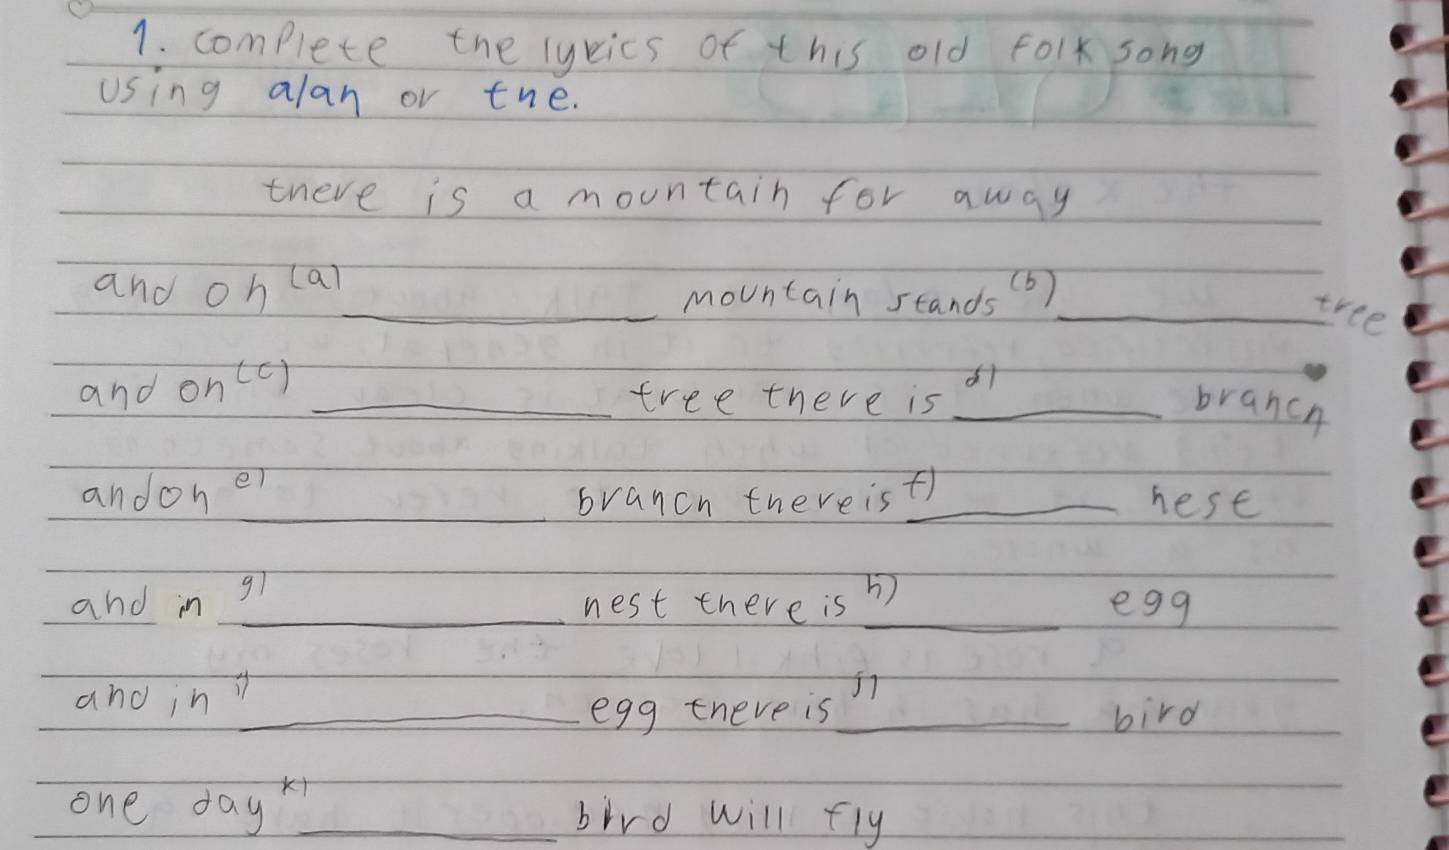 1. complete the lyrics of this old folk song
using a/an or the.
there is a mountain for away
and on (a) ____________ mountain stands (b) ____________ tree
and on (c) ____________ tree there is d) ________ branch
and on e) ____________ branch there is f) ________ nest
and in g) ____________ nest there is h) ________ egg
and in i) ____________ egg there is j) ________ bird
one day k) ____________ bird will fly